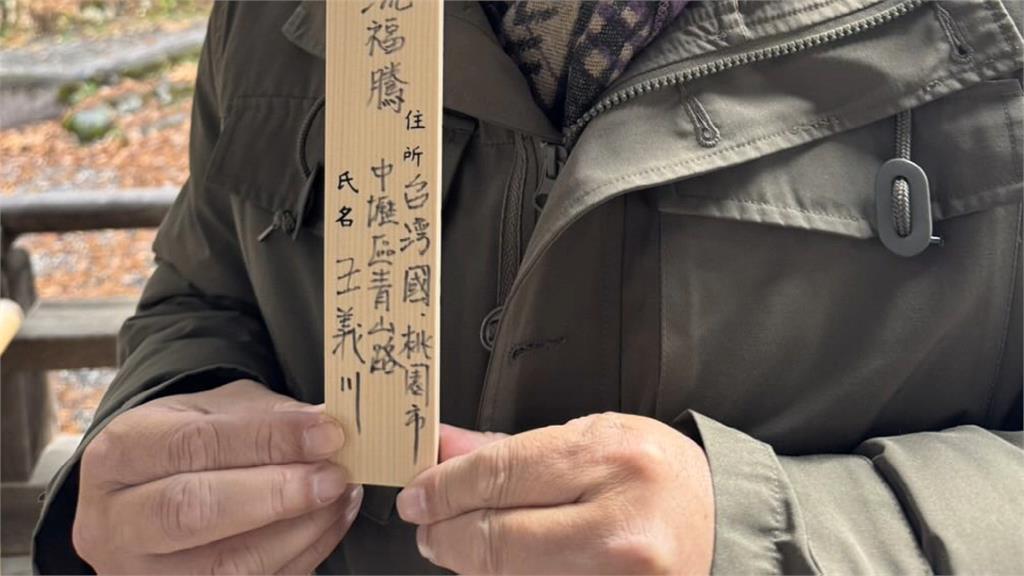 住所 台湾國.桃園市
中壢區青山路
福騰
氏名 王義川